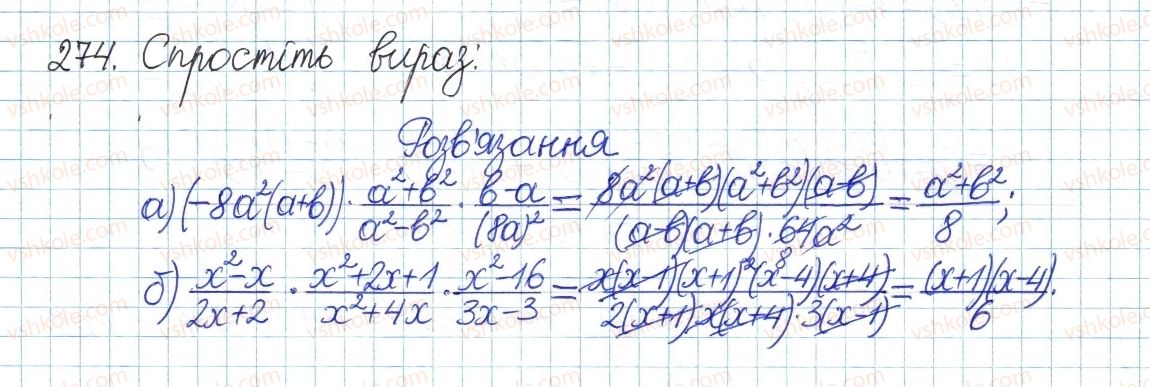 274. Спростіть вираз:
Розв'язання
а) (-8a²(a+b)) · (a²+b²)/(a²-b²) · (b-a)/(8a)² = 8a²(a+b)(a²+b²)(a-b)/((a-b)(a+b)·64a²) = (a²+b²)/8;
8
б) (x²-x)/(2x+2) · (x²+2x+1)/(x²+4x) · (x²-16)/(3x-3) = x(x-1)(x+1)²(x-4)(x+4)/(2(x+1)x(x+4)·3(x-1)) = (x+1)(x-4)/6.